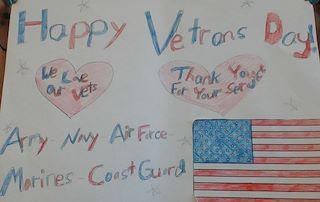 Happy Vetrans Day!
We Love
our Vets
Thank You
For Your Service
Army - Navy Air Force -
Marines - Coast Guard